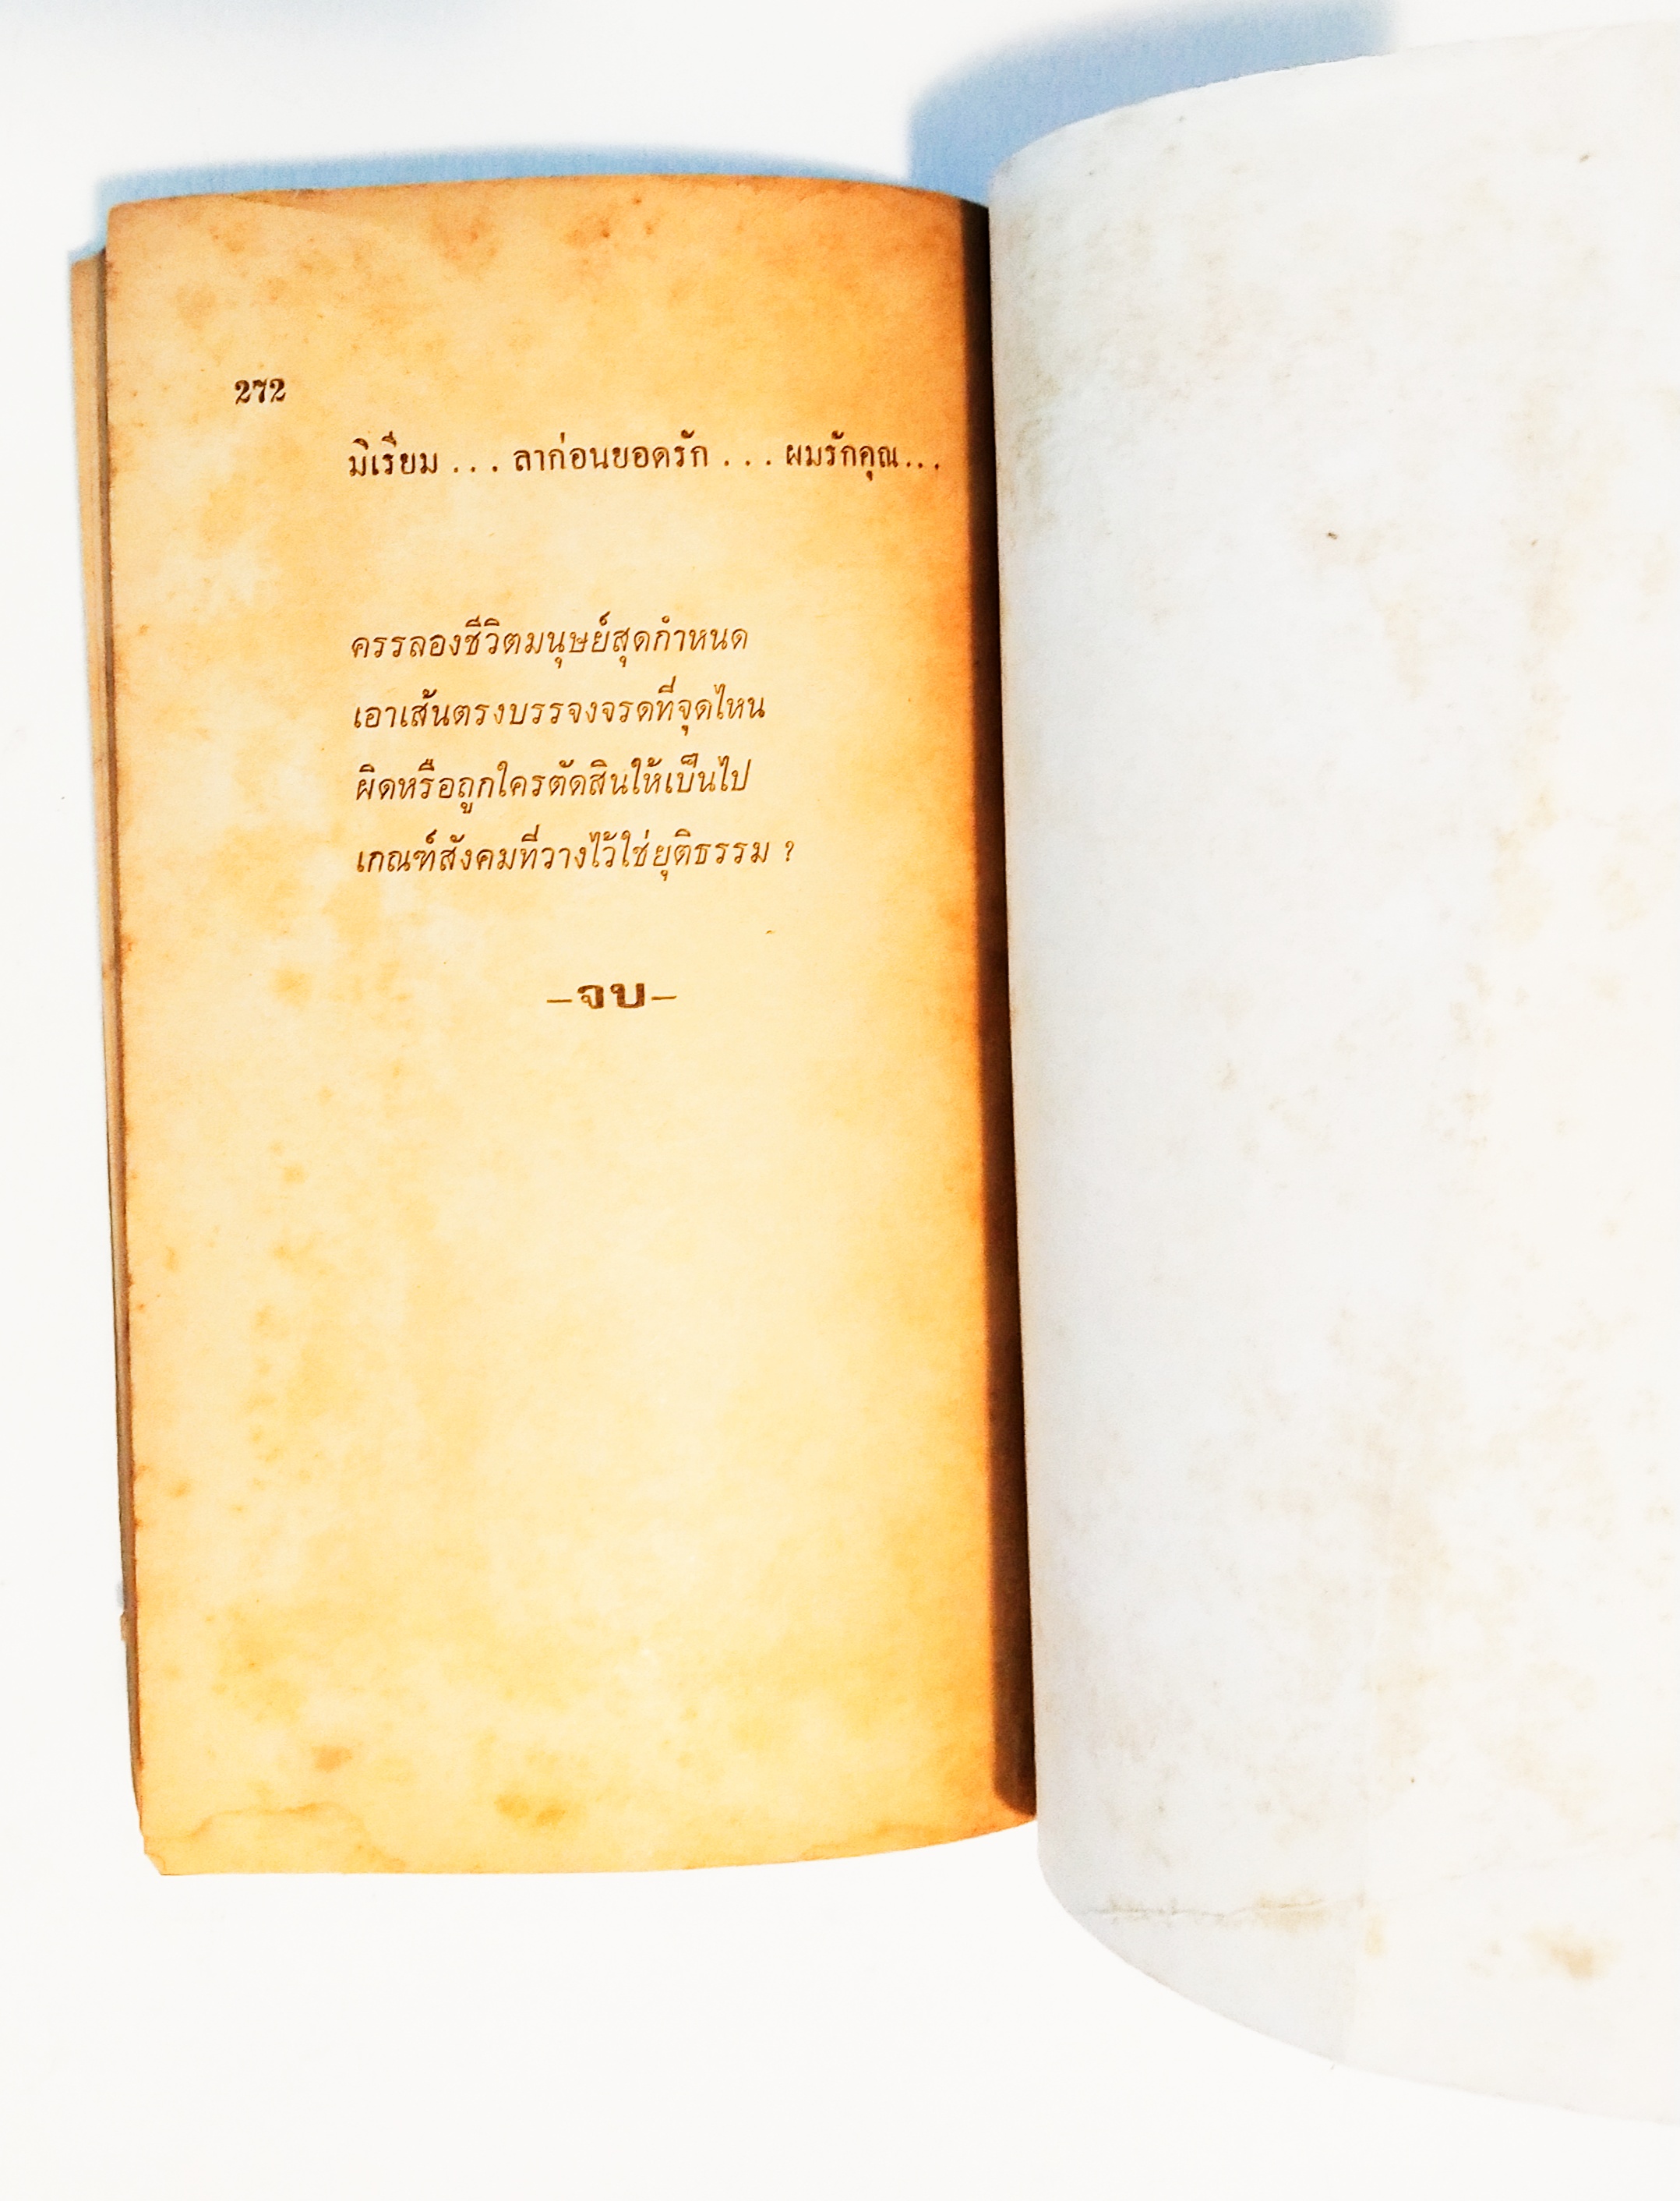 272
มิเรียม ... ลาก่อนยอดรัก ... ผมรักคุณ...
ครรลองชีวิตมนุษย์สุดกำหนด
เอาเส้นตรงบรรจงจรดที่จุดไหน
ผิดหรือถูกใครตัดสินให้เป็นไป
เกณฑ์สังคมที่วางไว้ใช่ยุติธรรม ?
–จบ–